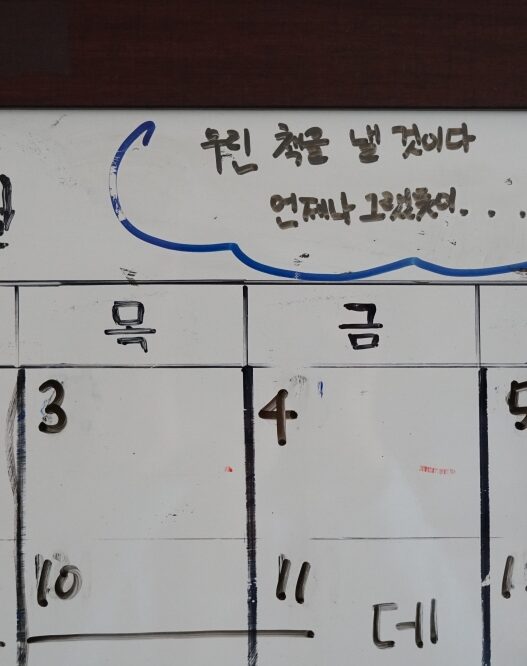 우린 책을 낼 것이다
언제나 그랬듯이. . . .
목 금
3 4 5
10 11 1
데